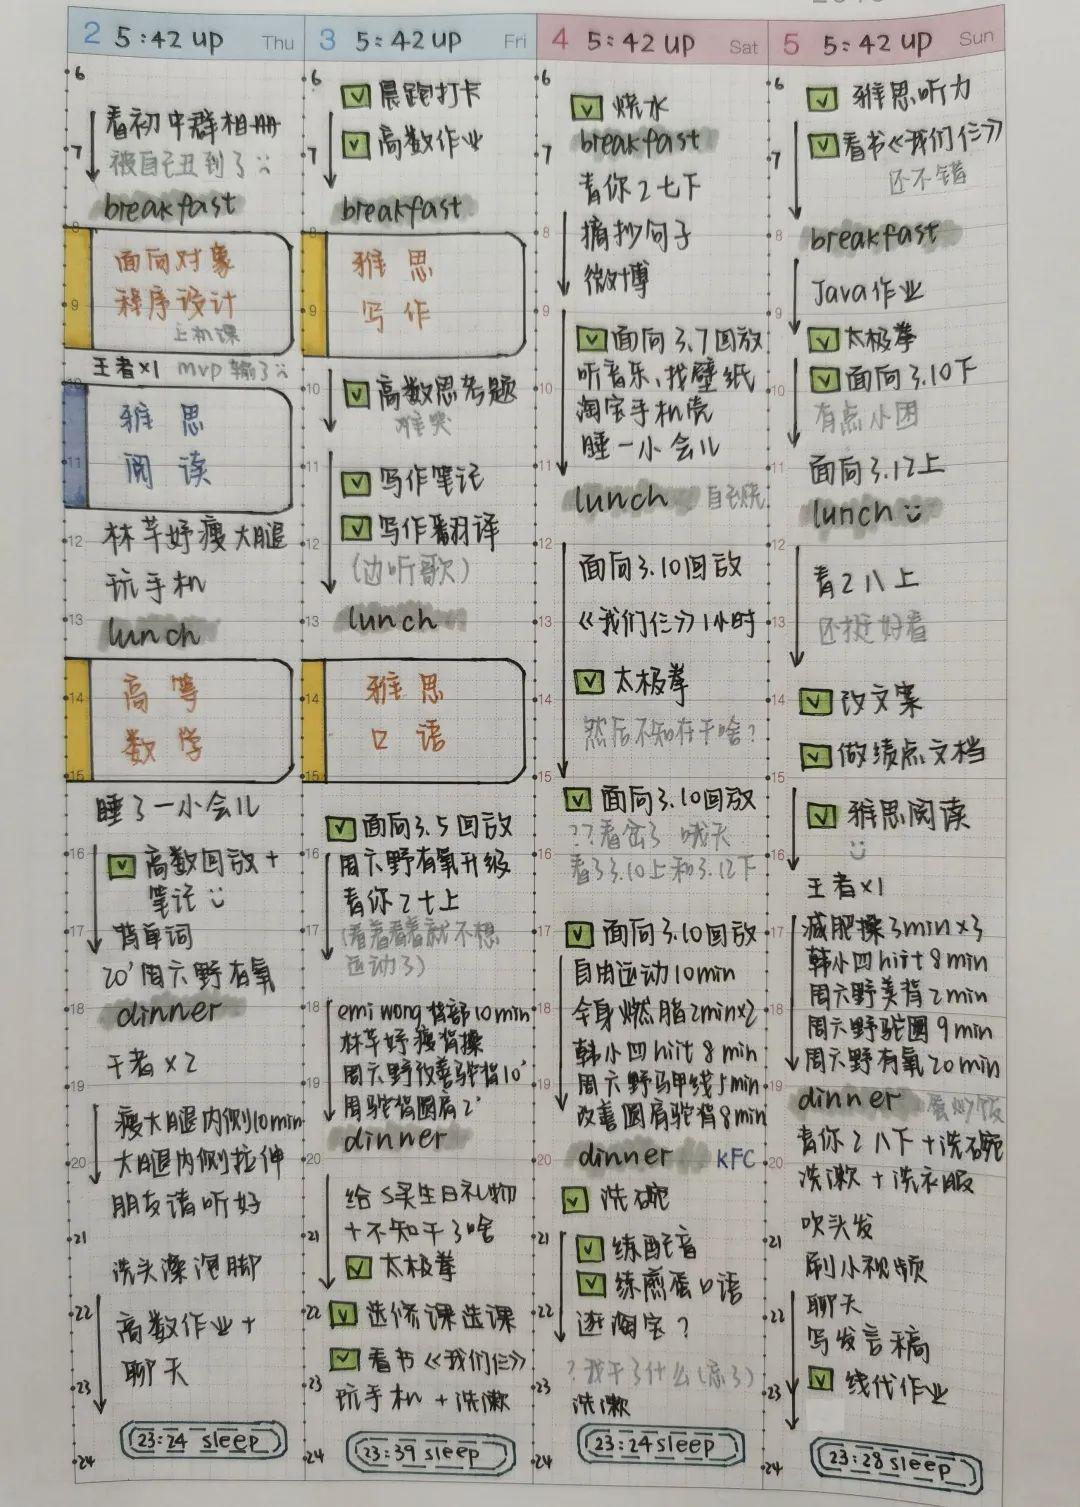 2 5:42 up Thu
6
看初中群相册
7
被自己丑到了
breakfast
8
面向对象
程序设计
9
上机课
王者×1 mvp 输了
10
雅思
11
阅读
12
林芊妤瘦大腿
玩手机
13
lunch
14
高等
数学
15
睡了一小会儿
16
高数回放+
笔记
17
背单词
20' 周六野有氧
18
dinner
王者×2
19
瘦大腿内侧10min
20
大腿内侧拉伸
朋友请听好
21
洗头澡泡脚
22
高数作业+
聊天
23
23:24 sleep
24
3 5:42 up Fri
6
晨跑打卡
高数作业
7
breakfast
雅思
9
写作
10
高数思考题
难哭
11
写作笔记
写作翻译
12
(边听歌)
13
lunch
14
雅思
口语
15
面向3.5回放
16
周六野有氧升级
看你2七上
17
(看着看着就不想
运动了)
18
emi wong 背部10min
林芊妤瘦背操
19
周六野改善驼背10'
周驼背圆肩2'
dinner
20
给S买生日礼物
21
+不知干了啥
太极拳
22
选修课选课
看书《我们仨》
23
玩手机+洗漱
23:39 sleep
24
4 5:42 up Sat
6
烧水
breakfast
7
看你2七下
8
摘抄句子
微博
9
面向3.7回放
10
听音乐、找壁纸
淘宝手机壳
睡一小会儿
11
lunch 自己烧
12
面向3.10回放
13
《我们仨》1小时
太极拳
14
然后不知在干啥?
15
面向3.10回放
??看岔了 哦天
16
看了3.10上和3.12下
17
面向3.10回放
自由运动10min
18
全身燃脂2min×2
韩小四hiit 8min
19
周六野马甲线5min
改善圆肩驼背8min
20
dinner KFC
洗碗
21
练配音
练煎蛋口语
22
逛淘宝?
?我干了什么(忘了)
23
洗漱
23:24 sleep
24
5 5:42 up Sun
6
雅思听力
7
看书《我们仨》
还不错
8
breakfast
Java作业
9
太极拳
10
面向3.10下
有点小困
11
面向3.12上
lunch
12
看2八上
13
还挺好看
14
改文案
做绩点文档
15
雅思阅读
16
王者×1
17
减肥操3min×3
韩小四hiit 8min
周六野美背2min
18
周六野驼圆9min
周六野有氧20min
19
dinner 蛋炒饭
看你2八下+洗碗
20
洗漱+洗衣服
吹头发
21
刷小视频
聊天
22
写发言稿
23
线代作业
23:28 sleep
24